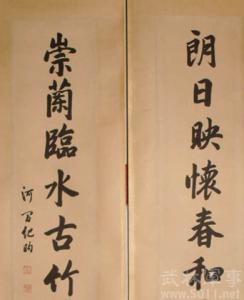 朗日映懷春和
崇蘭臨水古竹
河間紀昀
www.5011.net